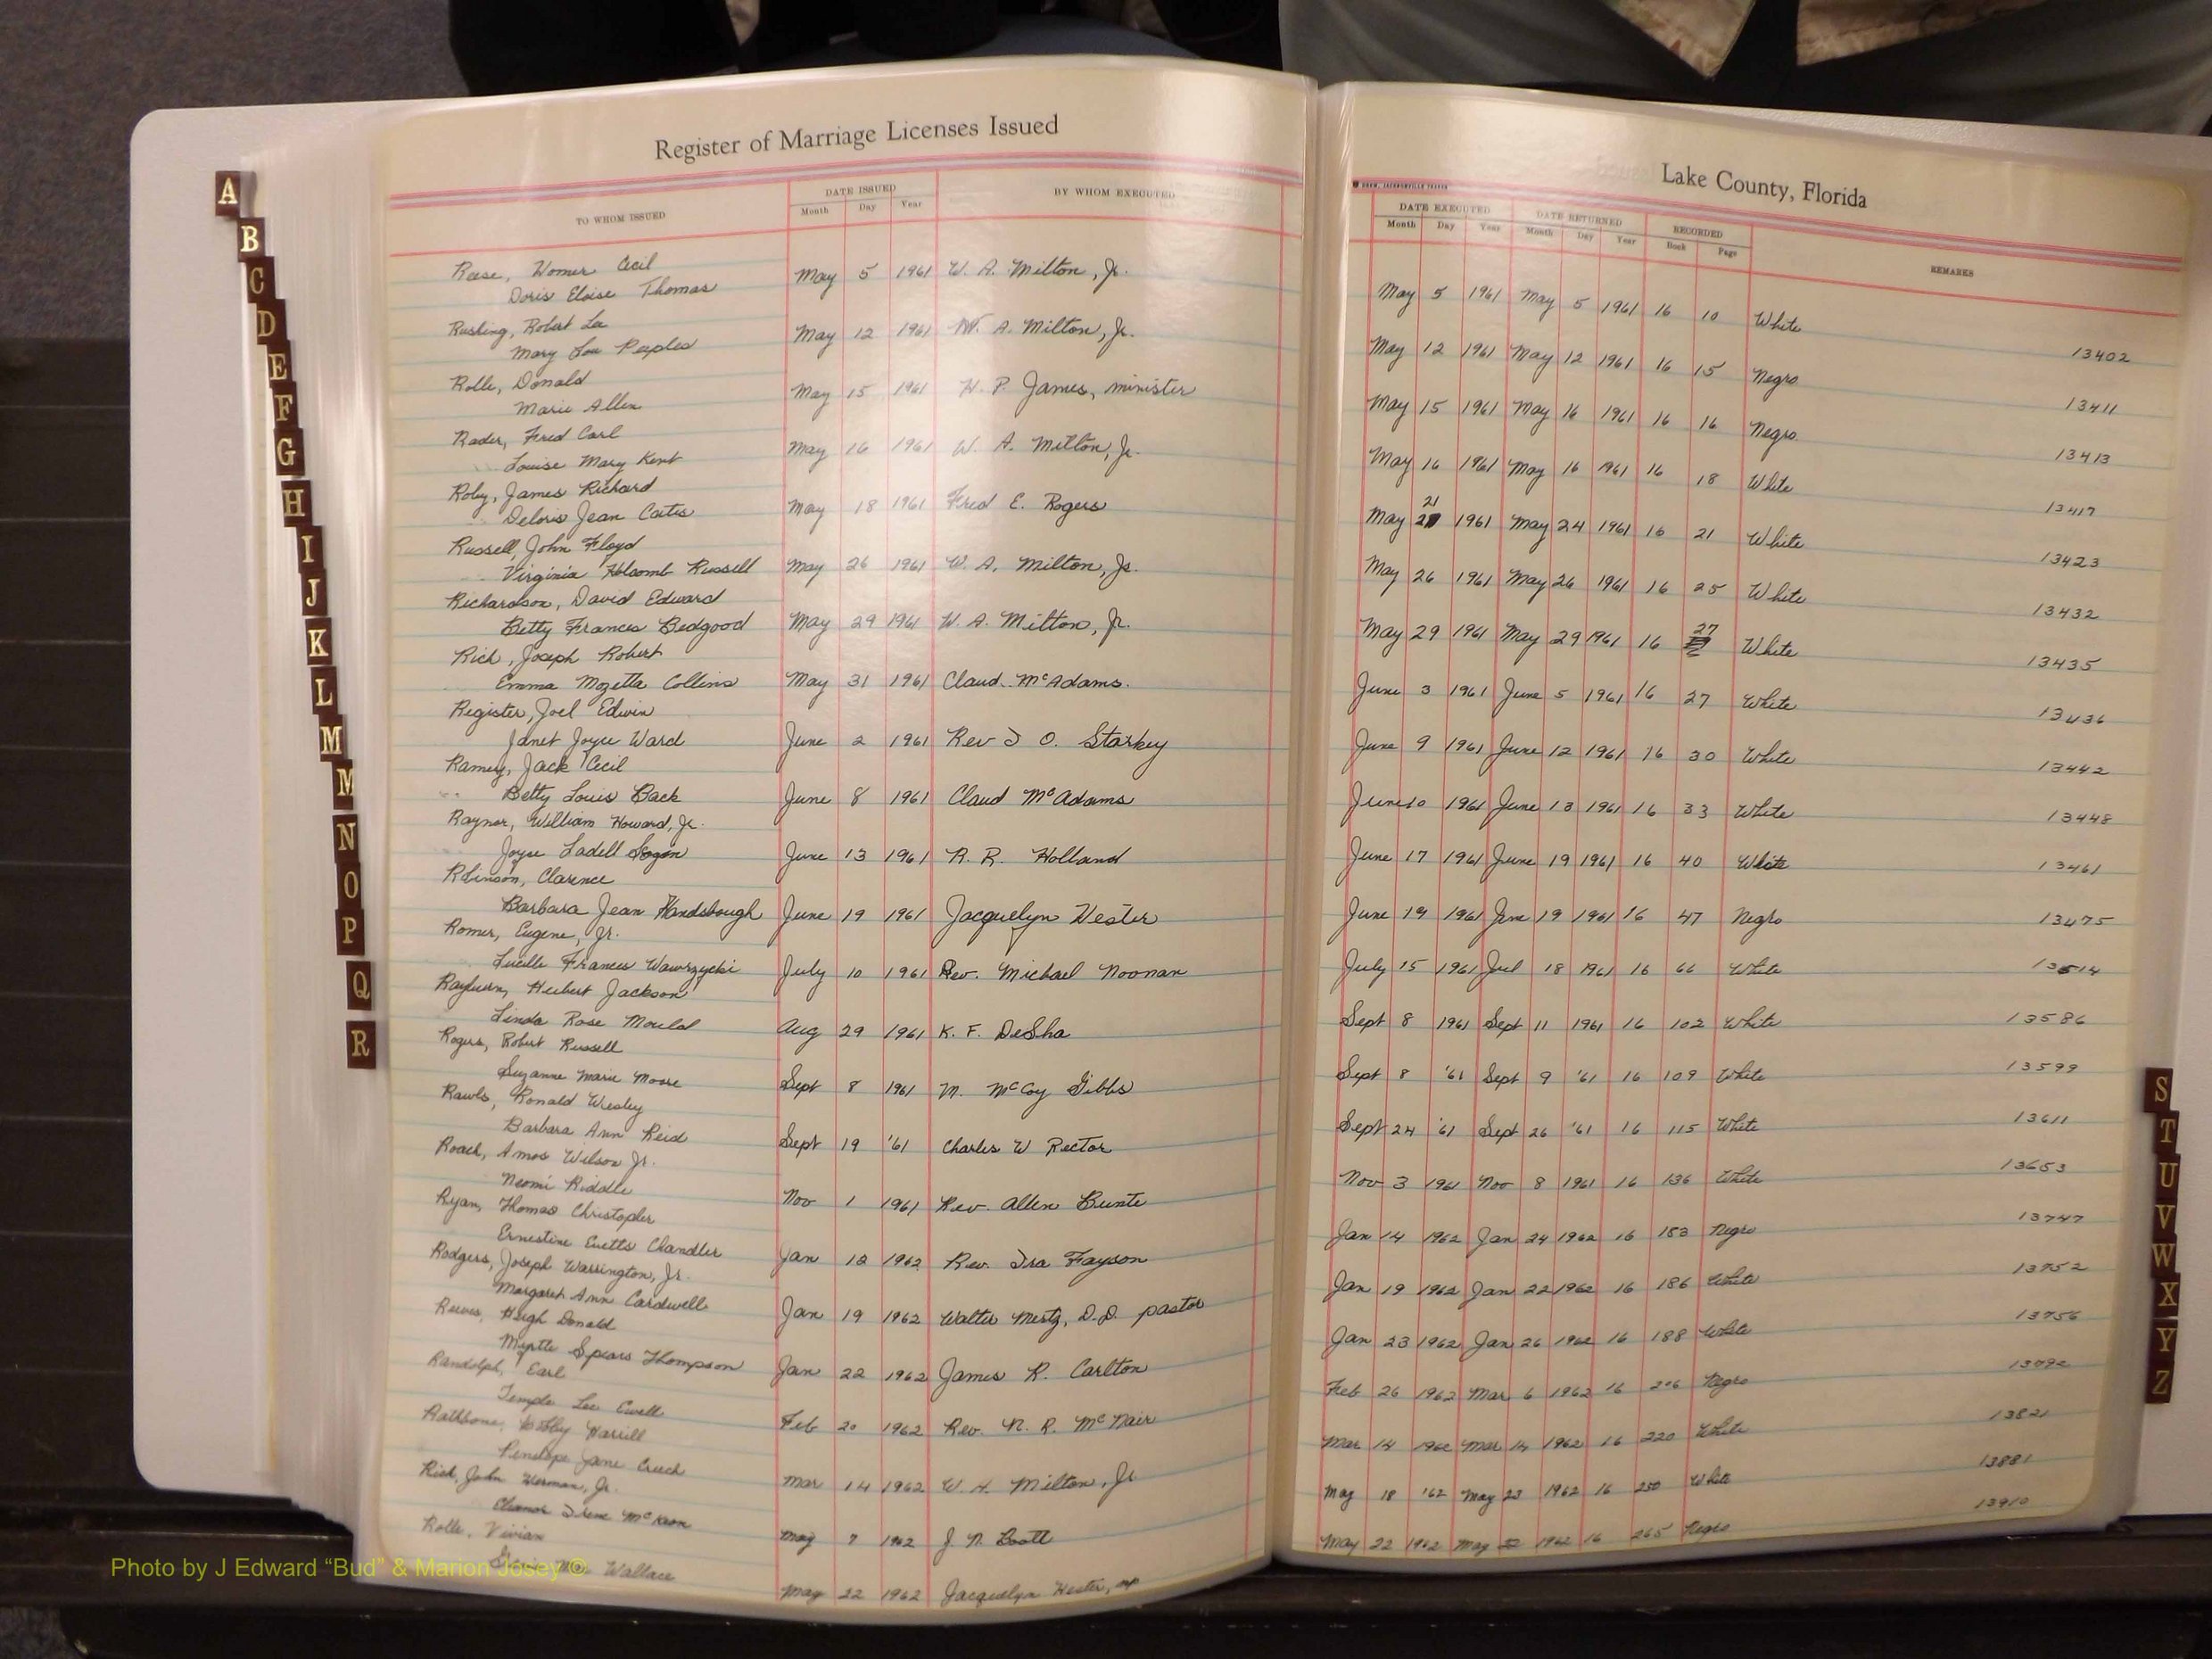 Register of Marriage Licenses Issued
TO WHOM ISSUED DATE ISSUED BY WHOM EXECUTED
Month Day Year
Reese, Womer Cecil
Doris Eloise Thomas May 5 1961 W. A. Milton, Jr.
Rusking, Robert Lee
Mary Lou Peeples May 12 1961 W. A. Milton, Jr.
Rolle, Donald
Marie Allen May 15 1961 H. P. James, minister
Rader, Fred Carl
Louise Mary Kent May 16 1961 W. A. Milton, Jr.
Roby, James Richard
Deloris Jean Cates May 18 1961 Fred E. Rogers
Russell, John Floyd
Virginia Holcomb Russell May 26 1961 W. A. Milton, Jr.
Richardson, David Edward
Betty Frances Bedgood May 29 1961 W. A. Milton, Jr.
Rich, Joseph Robert
Emma Mozella Collins May 31 1961 Claud McAdams.
Register, Joel Edwin
Janet Joyce Ward June 2 1961 Rev J O. Starkey
Ramey, Jack Cecil
Betty Louis Back June 8 1961 Claud McAdams
Raynor, William Howard, Jr.
Joyce Ladell June 13 1961 R. R. Holland
Robinson, Clarence
Barbara Jean Handsbough June 19 1961 Jacquelyn Hester
Romer, Eugene, Jr.
Lucille Frances Wawrzycki July 10 1961 Rev. Michael Noonan
Rayburn, Herbert Jackson
Linda Rose Mould Aug 29 1961 K. F. DeSha
Rogers, Robert Russell
Suzanne Marie Moore Sept 8 1961 M. McCoy Gibbs
Rawls, Ronald Wesley
Barbara Ann Reid Sept 19 '61 Charles W Rector
Roach, Amos Wilson Jr.
Neomi Riddle Nov 1 1961 Rev. Allen Bunte
Ryan, Thomas Christopher
Ernestine Chandler Jan 12 1962 Rev. Ira Fayson
Rodgers, Joseph Warrington, Jr.
Margaret Ann Cardwell Jan 19 1962 Walter Mertz, D.D. pastor
Reeves, Hugh Donald
Myrtle Spears Thompson Jan 22 1962 James R. Carlton
Randolph, Earl
Temple Lee Ewell Feb 20 1962 Rev. N. R. McNair
Rathbone, Harrill
Penelope Jane Creech Mar 14 1962 W. A. Milton, Jr
Rich, John Herman, Jr.
Eleanor Irene McKeon May 7 1962 J. N.
Rolle, Vivian
Wallace May 22 1962 Jacquelyn Hester,
Lake County, Florida
DATE EXECUTED DATE RETURNED RECORDED REMARKS
Month Day Year Month Day Year Book Page
May 5 1961 May 5 1961 16 10 White 13402
May 12 1961 May 12 1961 16 15 Negro 13411
May 15 1961 May 16 1961 16 16 Negro 13413
May 16 1961 May 16 1961 16 18 White 13417
May 21 1961 May 24 1961 16 21 White 13423
May 26 1961 May 26 1961 16 25 White 13432
May 29 1961 May 29 1961 16 27 White 13435
June 3 1961 June 5 1961 16 27 White 13436
June 9 1961 June 12 1961 16 30 White 13442
June 10 1961 June 13 1961 16 33 White 13448
June 17 1961 June 19 1961 16 40 White 13461
June 19 1961 June 19 1961 16 47 Negro 13475
July 15 1961 Jul 18 1961 16 66 White 13514
Sept 8 1961 Sept 11 1961 16 102 White 13586
Sept 8 '61 Sept 9 '61 16 109 White 13599
Sept 24 '61 Sept 26 '61 16 115 White 13611
Nov 3 1961 Nov 8 1961 16 136 White 13653
Jan 14 1962 Jan 24 1962 16 183 Negro 13747
Jan 19 1962 Jan 22 1962 16 186 White 13752
Jan 23 1962 Jan 26 1962 16 188 White 13756
Feb 26 1962 Mar 6 1962 16 206 Negro 13792
Mar 14 1962 Mar 14 1962 16 220 White 13821
May 18 '62 May 23 1962 16 250 White 13881
May 22 1962 May 22 1962 16 265 Negro 13910
A
B
C
D
E
F
G
H
I
J
K
L
M
M
N
O
P
Q
R
S
T
U
V
W
X
Y
Z
Photo by J Edward “Bud” & Marion Josey ©